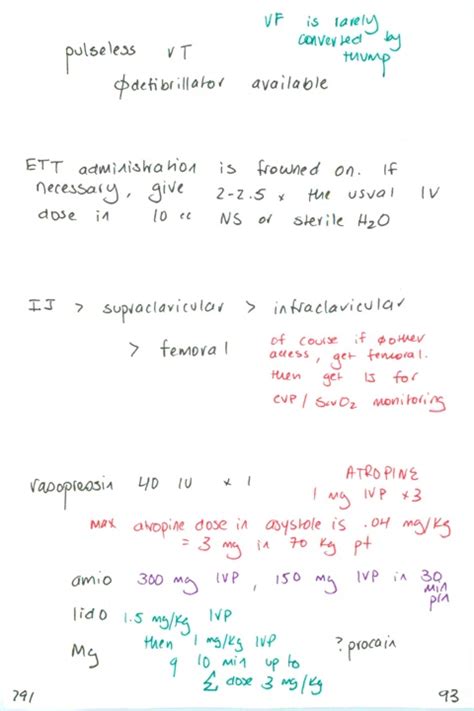 VF is rarely
converted by
thump
pulseless VT
∅defibrillator available
ETT administration is frowned on. If
necessary, give 2-2.5 x the usual IV
dose in 10 cc NS or sterile H₂O
IJ > supraclavicular > infraclavicular
> femoral
of course if ∅other
access, get femoral.
then get IJ for
CVP/ScvO₂ monitoring
vasopressin 40 IU x 1
ATROPINE
1 mg IVP x3
max atropine dose in asystole is .04 mg/kg
= 3 mg in 70 kg pt
amio 300 mg IVP, 150 mg IVP in 30
min
prn
lido 1.5 mg/kg IVP
then 1 mg/kg IVP
Mg ? procain
q 10 min up to
Σ dose 3 mg/kg
791 93